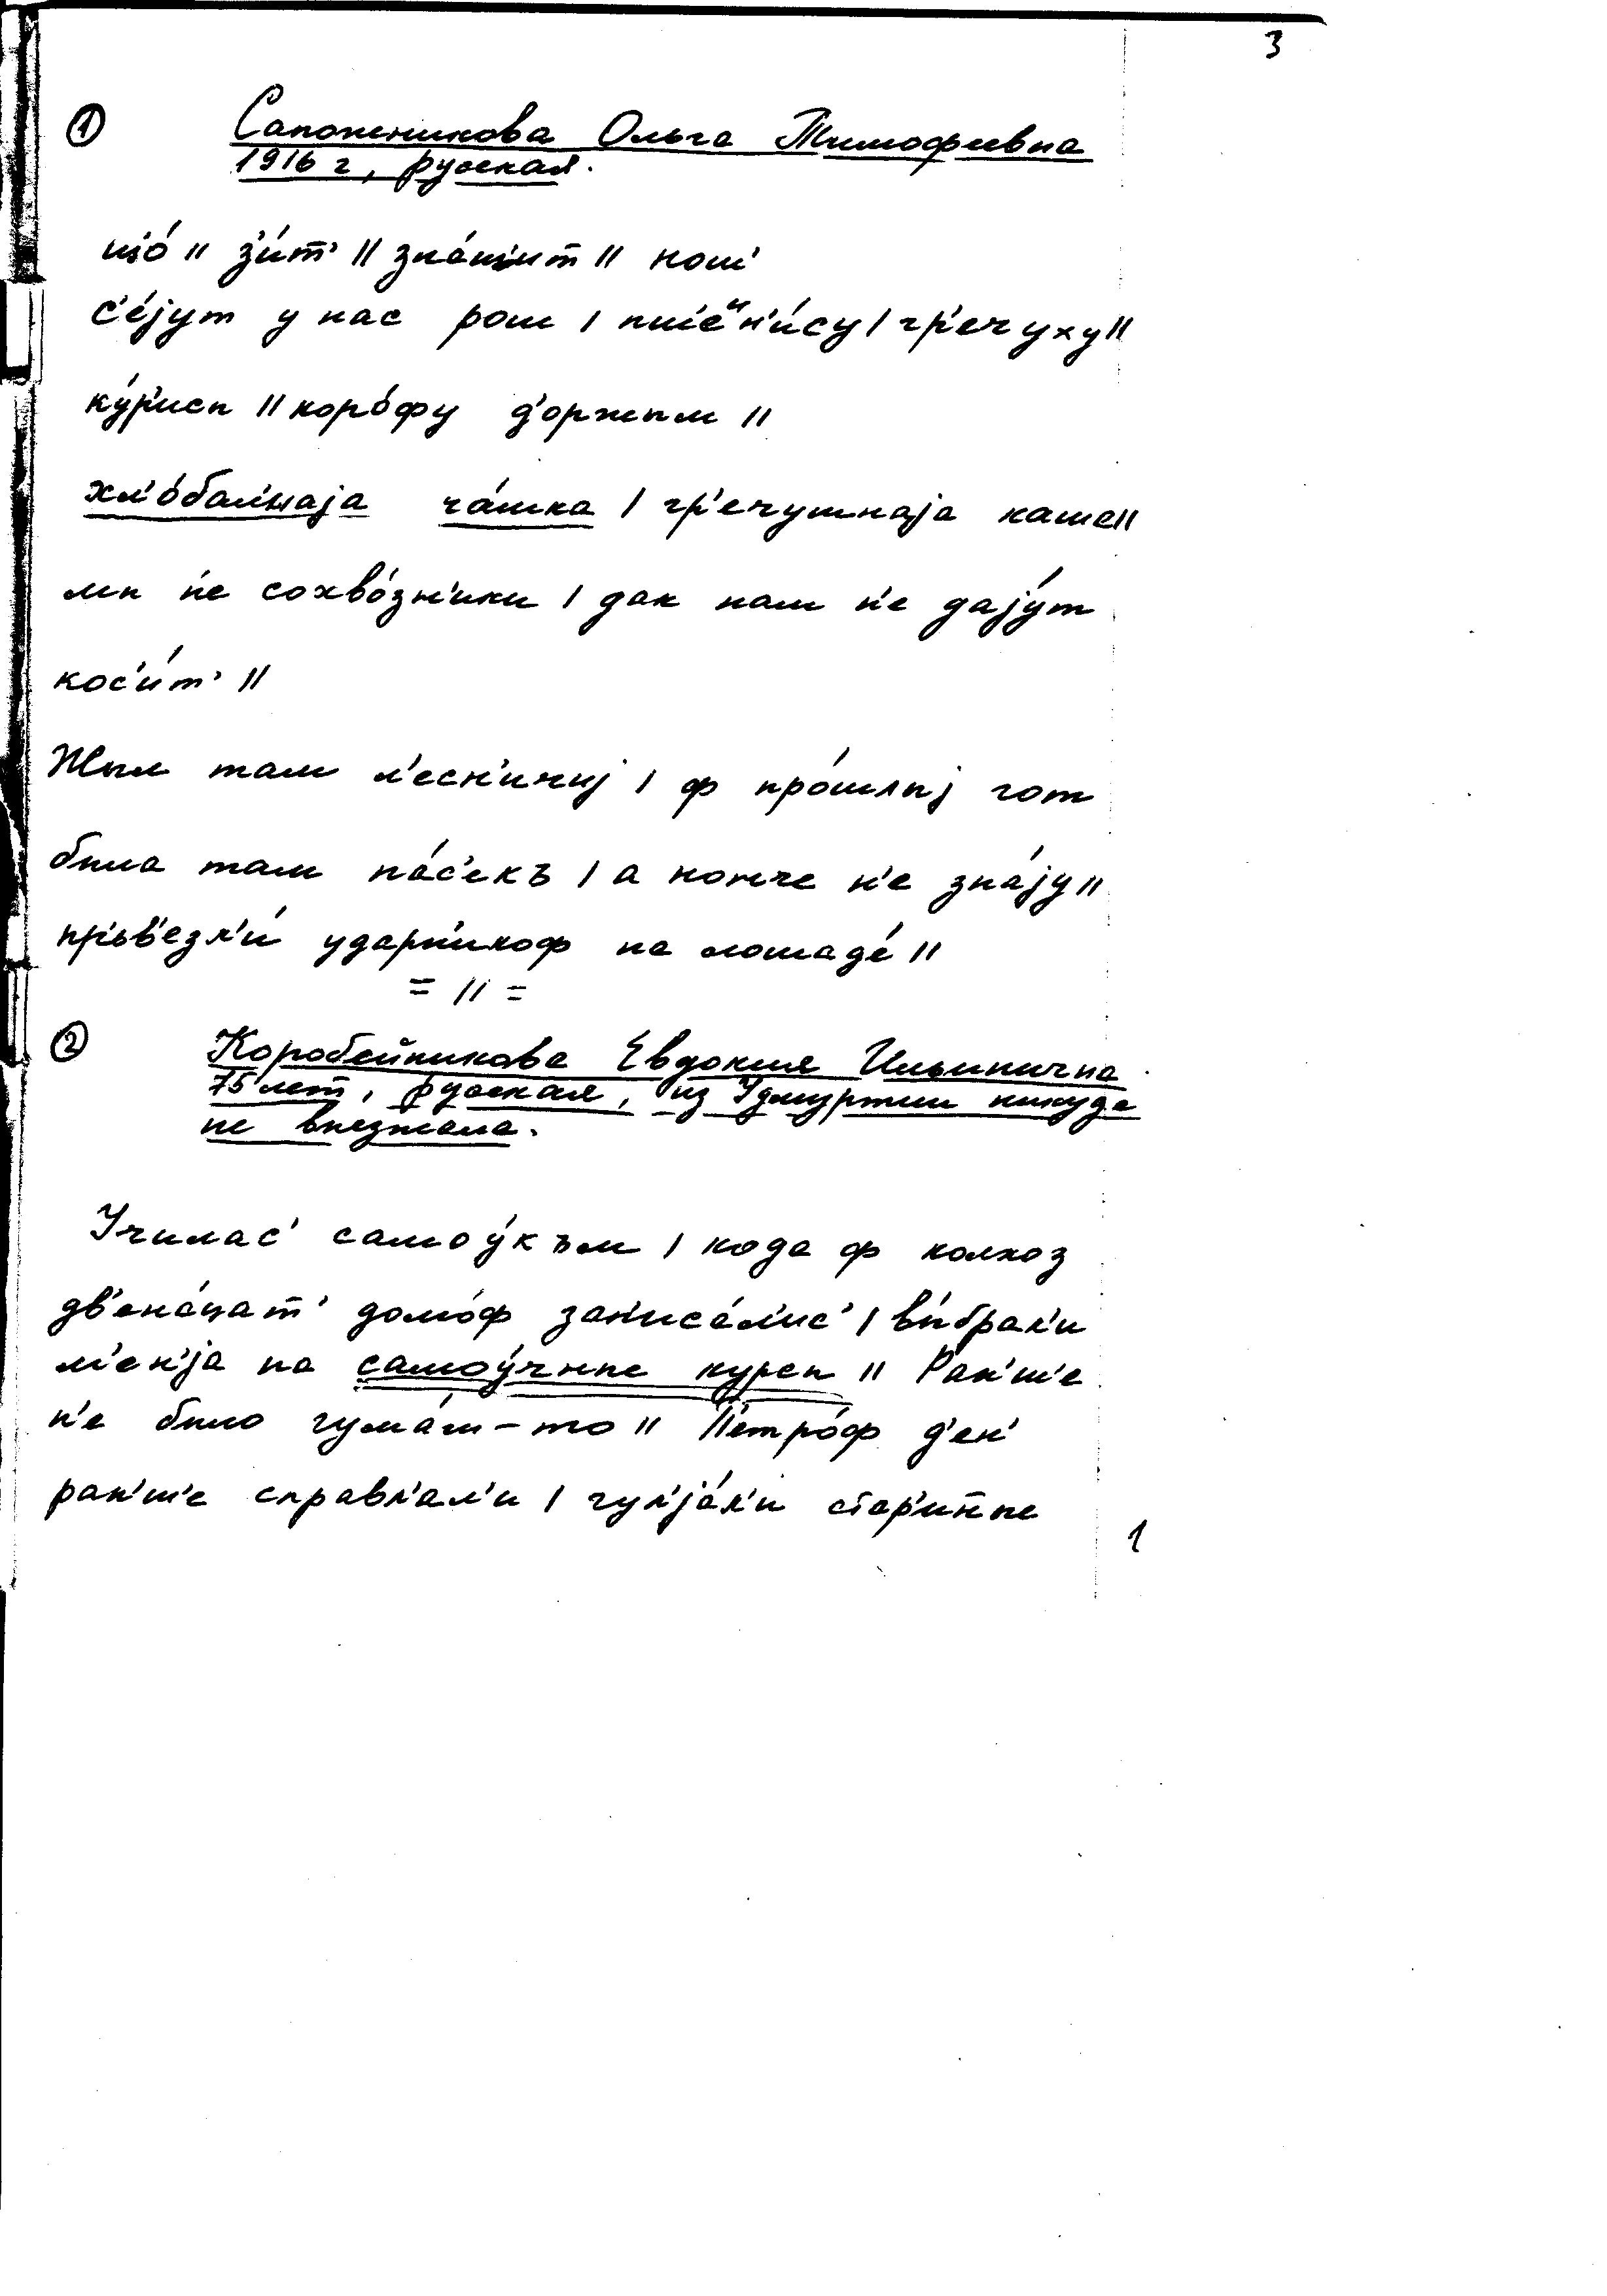 3
① Сапожникова Ольга Тимофеевна
1916 г, русская.
що́ || з'и́т' || зна́щит || нош'
с'е́jут у нас рош | пш'еᵘн'и́су | гр'ечуху ||
ку́р'исы || коро́фу д'оржым ||
хл'о́бал'наjа ча́шка | гр'ечушнаjа каша ||
мы н'е сохво́зн'ики | дак нам н'е даjу́т
кос'и́т' ||
Жыл там л'есн'ичиj | ф про́шлыj гот
была там па́с'екъ | а нонче н'е зна́jу ||
пр'ьв'езл'и́ ударн'икоф на лошаде́ ||
= || =
② Коробейникова Евдокия Ильинична
75 лет, русская, из Удмуртии никуда
не выезжала.
Училас' самоу́към | кода ф колхоз
дв'ена́цат' домо́ф зап'иса́л'ис' | вы́брал'и
м'ен'jа на самоу́чные курсы || Ран'ш'е
н'е было гума́ш-то || П'етро́ф д'ен'
ран'ш'е справл'ал'и | гул'jа́л'и стар'инные
1